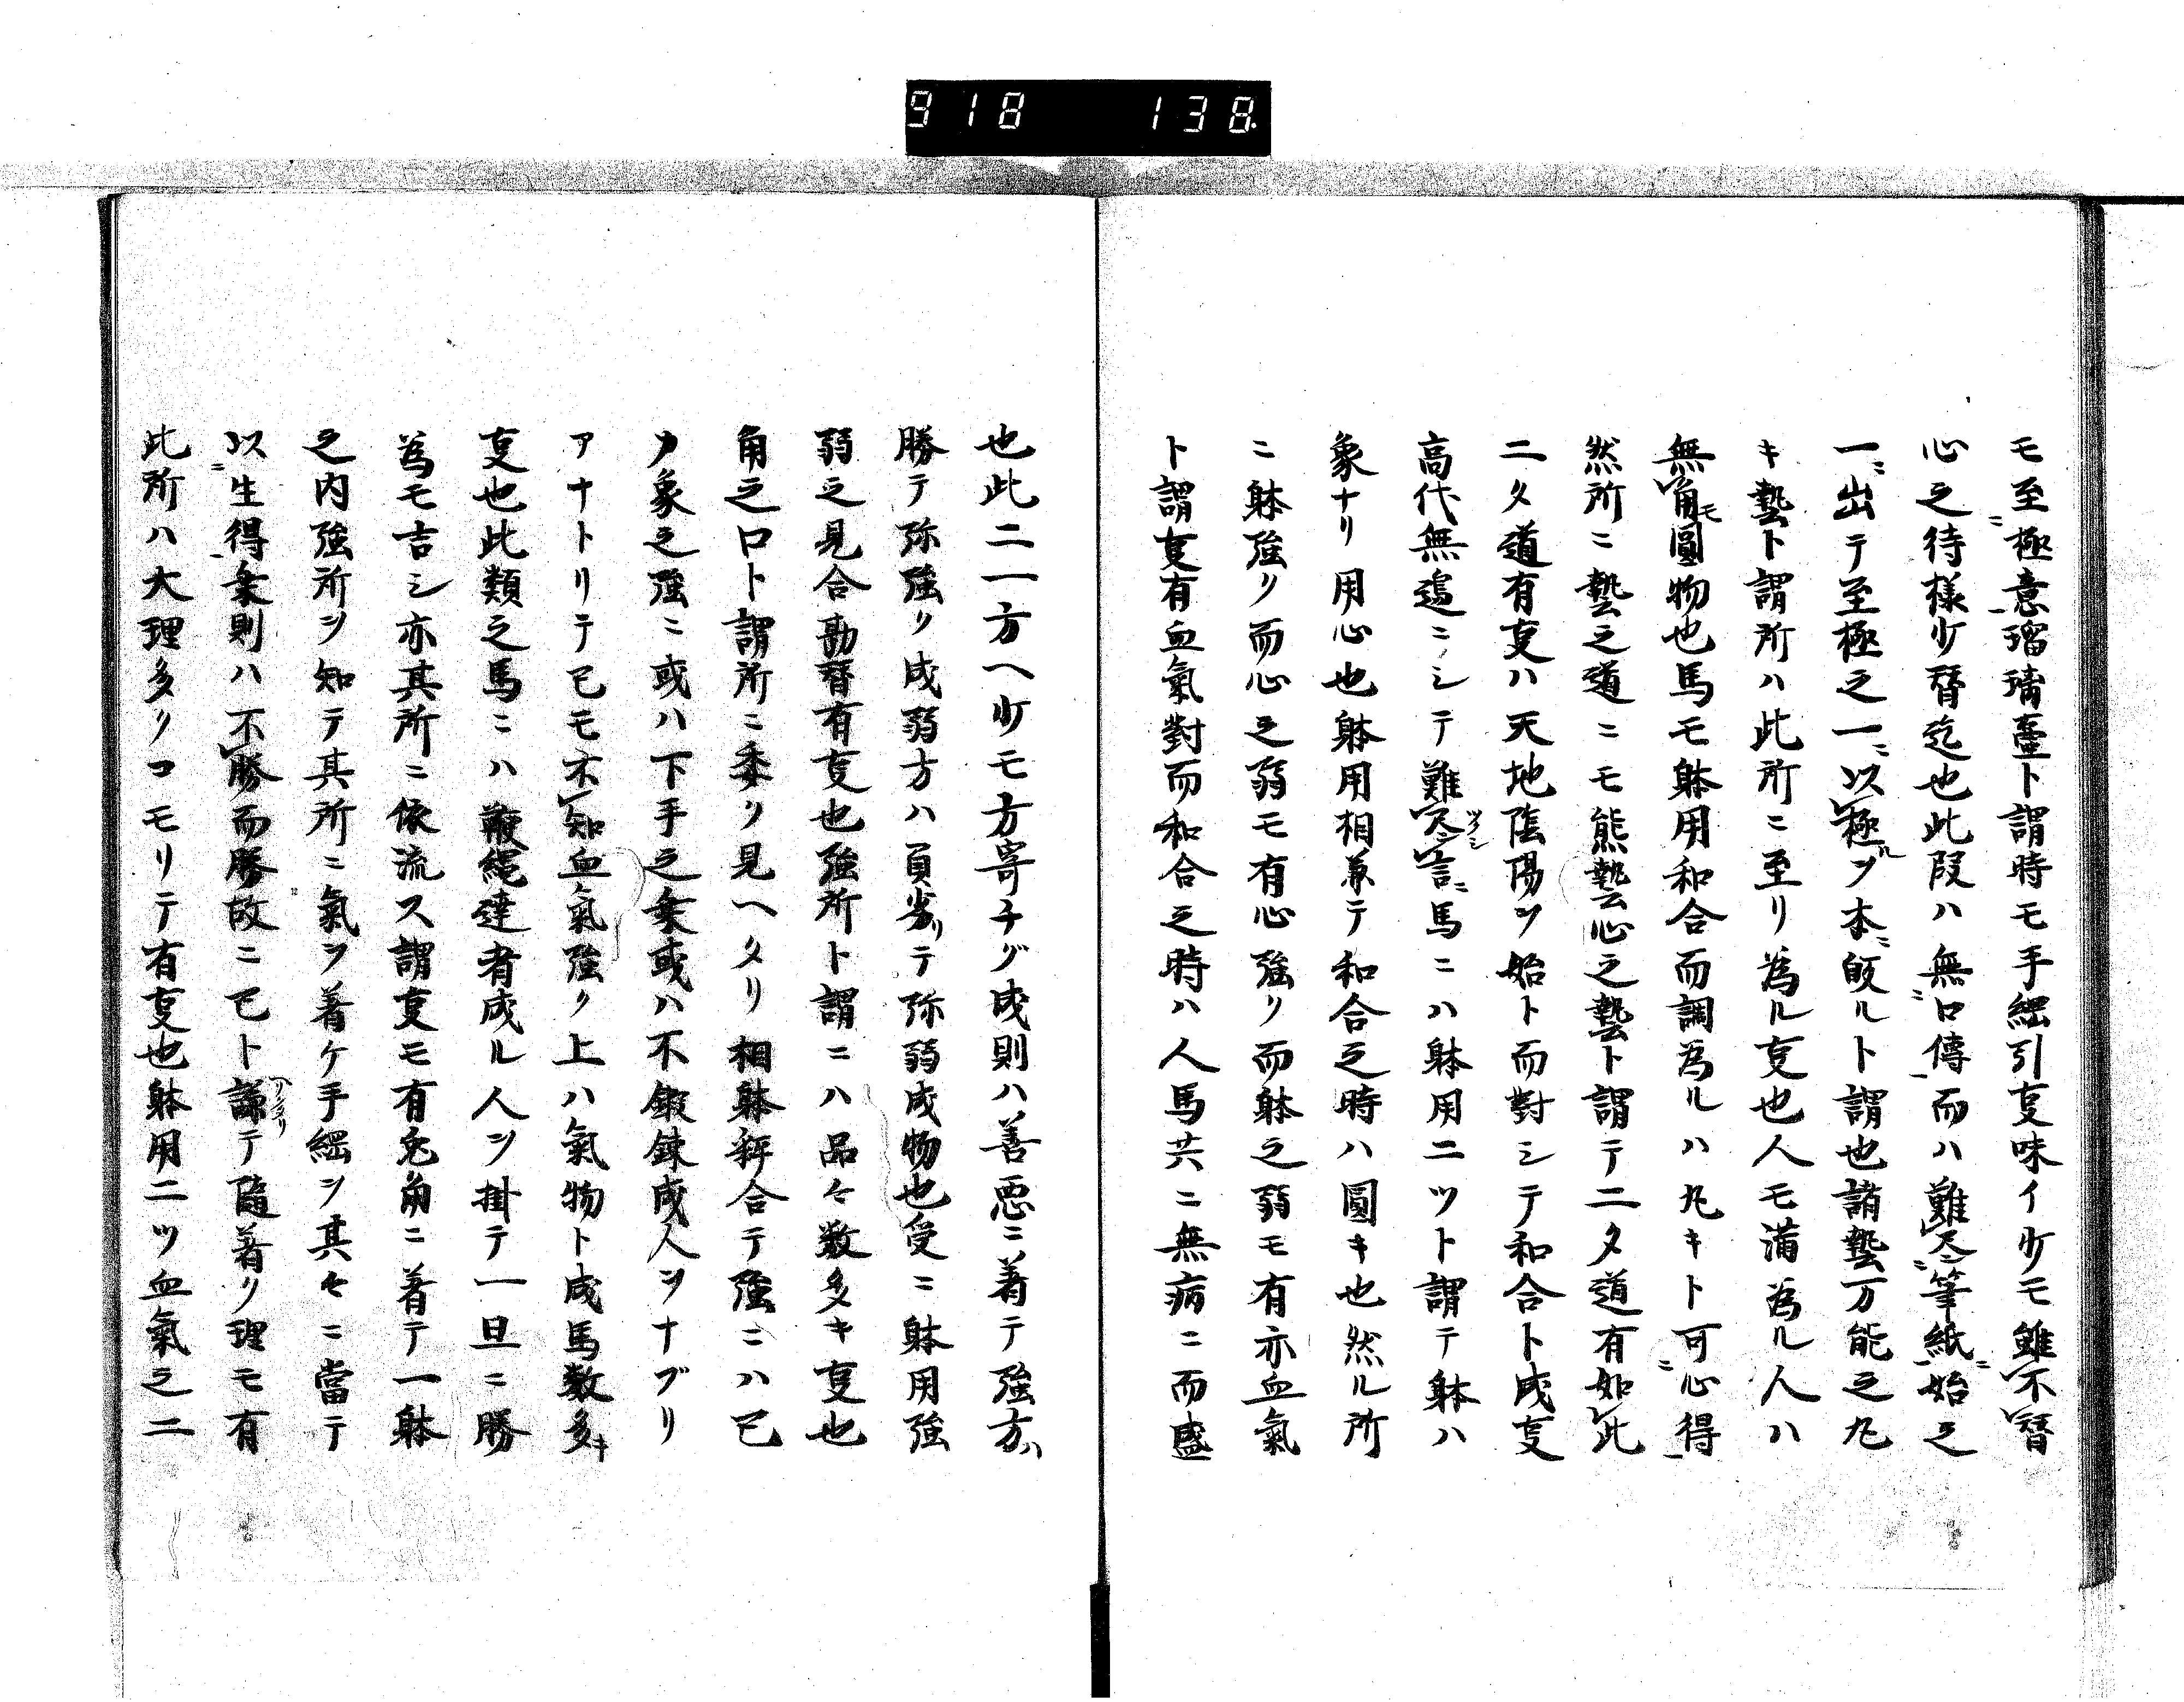 918 138
モ至極意瑠璃臺ト謂時モ手綱引叓味イ少モ雖不替
心之待様少替迄也此段ハ無口傳而ハ難尽筆紙始之
一ニ出テ至極之一ニ以極ヲ本ニ皈ルト謂也諸藝万能之丸
キ藝ト謂所ハ此所ニ至リ為ル叓也人モ満為ル人ハ
無角モ圓物也馬モ躰用和合而調為ルハ丸キト可心得
然所ニ藝之道ニモ熊藝心之藝ト謂テ二タ道有如此
二タ道有叓ハ天地陰陽ヲ始ト而對シテ和合ト成叓
高代無邉ニシテ難尽ツクシ言ニ馬ニハ躰用二ツト謂テ躰ハ
象ナリ用心也躰用相兼テ和合之時ハ圓キ也然ル所
ニ躰強ク而心之弱モ有心強ク而躰之弱モ有亦血氣
ト謂叓有血氣對而和合之時ハ人馬共ニ無病ニ而盛
也此二一方ヘ少モ方寄チグ成則ハ善悪ニ着テ強方ハ
勝テ弥強ク成弱方ハ負劣リテ弥弱成物也受ニ躰用強
弱之見合勘替有叓也強所ト謂ニハ品々数多キ叓也
角之口ト謂所ニ委ク見ヘタリ相躰秤合テ強ニハ己
カ象之強ニ或ハ下手之乗或ハ不鍛錬成人ヲナブリ
アナトリテ己モ不知血氣強ク上ハ氣物ト成馬数多キ
叓也此類之馬ニハ鞭縄達者成ル人ヲ掛テ一旦ニ勝
為モ吉シ亦其所ニ依流ス謂叓モ有兎角ニ着テ一躰
之内強所ヲ知テ其所ニ氣ヲ着ケ手綱ヲ其々ニ當テ
以ニ生得乗則ハ不勝而勝故ニ己ト謙テ随着ク理モ有
此所ハ大理多クコモリテ有叓也躰用二ツ血氣之二